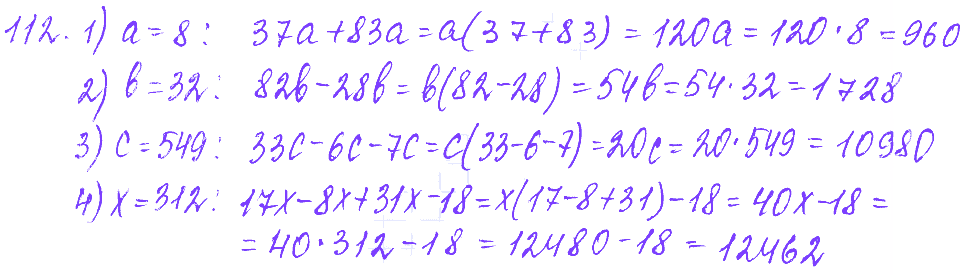 112. 1) a = 8 : 37a + 83a = a(37 + 83) = 120a = 120 · 8 = 960
2) b = 32 : 82b - 28b = b(82 - 28) = 54b = 54 · 32 = 1728
3) c = 549 : 33c - 6c - 7c = c(33 - 6 - 7) = 20c = 20 · 549 = 10980
4) x = 312 : 17x - 8x + 31x - 18 = x(17 - 8 + 31) - 18 = 40x - 18 =
= 40 · 312 - 18 = 12480 - 18 = 12462